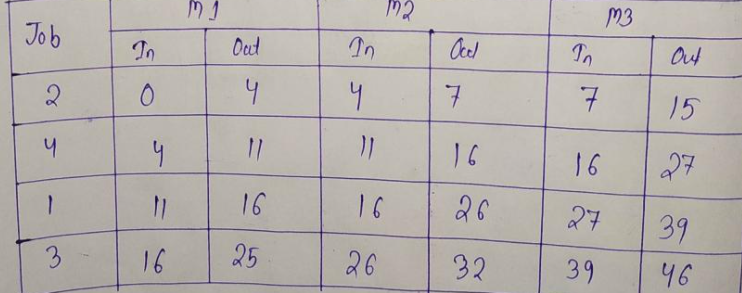 Job M1 M2 M3
In Out In Out In Out
2 0 4 4 7 7 15
4 4 11 11 16 16 27
1 11 16 16 26 27 39
3 16 25 26 32 39 46